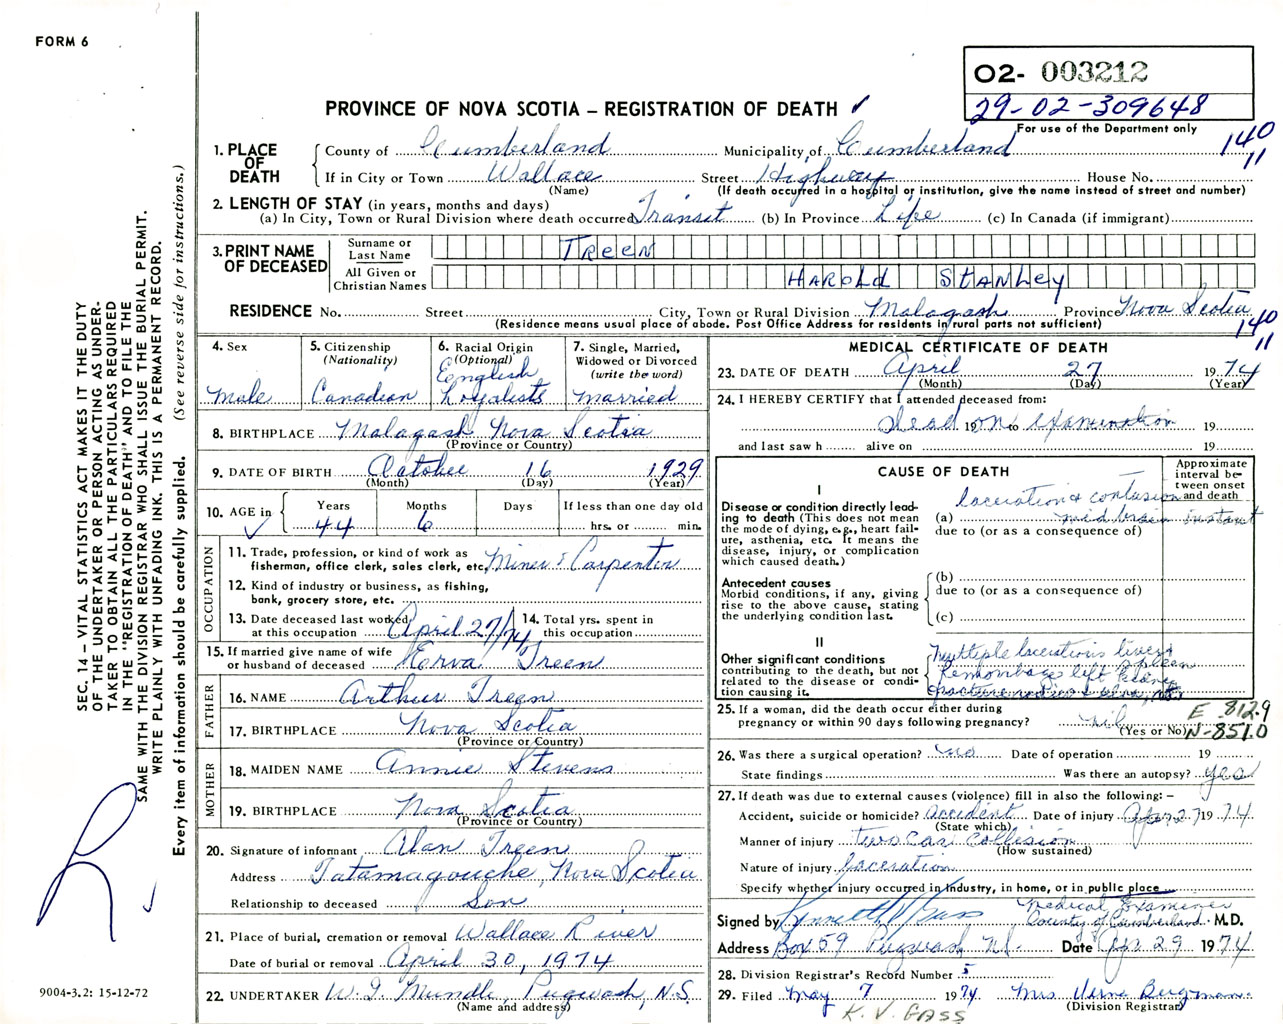 FORM 6
O2- 003212
29-02-309648
PROVINCE OF NOVA SCOTIA – REGISTRATION OF DEATH ✓
For use of the Department only
140
11
1. PLACE OF DEATH
County of Cumberland Municipality of Cumberland
If in City or Town Wallace Street Highway House No.
(Name) (If death occurred in a hospital or institution, give the name instead of street and number)
2. LENGTH OF STAY (in years, months and days)
(a) In City, Town or Rural Division where death occurred Transit (b) In Province Life (c) In Canada (if immigrant)
3. PRINT NAME OF DECEASED
Surname or Last Name TREEN
All Given or Christian Names HAROLD STANLEY
RESIDENCE No. Street City, Town or Rural Division Malagash Province Nova Scotia
(Residence means usual place of abode. Post Office Address for residents in rural parts not sufficient)
140
11
4. Sex
Male
5. Citizenship
(Nationality)
Canadian
6. Racial Origin
(Optional)
English
Loyalists
7. Single, Married,
Widowed or Divorced
(write the word)
Married
8. BIRTHPLACE Malagash Nova Scotia
(Province or Country)
9. DATE OF BIRTH October 16 1929
(Month) (Day) (Year)
10. AGE in ✓
Years Months Days If less than one day old
44 6 hrs. or min.
OCCUPATION
11. Trade, profession, or kind of work as
fisherman, office clerk, sales clerk, etc. Miner & Carpenter
12. Kind of industry or business, as fishing,
bank, grocery store, etc.
13. Date deceased last worked
at this occupation April 27/74
14. Total yrs. spent in
this occupation
15. If married give name of wife
or husband of deceased Erva Treen
FATHER
16. NAME Arthur Treen
17. BIRTHPLACE Nova Scotia
(Province or Country)
MOTHER
18. MAIDEN NAME Annie Stevens
19. BIRTHPLACE Nova Scotia
(Province or Country)
20. Signature of informant Alan Treen
Address Tatamagouche, Nova Scotia
Relationship to deceased Son
21. Place of burial, cremation or removal Wallace River
Date of burial or removal April 30, 1974
22. UNDERTAKER W. J. Mundle, Pugwash, N.S.
(Name and address)
MEDICAL CERTIFICATE OF DEATH
23. DATE OF DEATH April 27 1974
(Month) (Day) (Year)
24. I HEREBY CERTIFY that I attended deceased from:
Dead 19 on to examination 19
and last saw h alive on 19
CAUSE OF DEATH
Approximate
interval be-
tween onset
and death
I
Disease or condition directly lead-
ing to death (This does not mean
the mode of dying, e.g., heart fail-
ure, asthenia, etc. It means the
disease, injury, or complication
which caused death.)
laceration & contusion
(a) mid brain instant
due to (or as a consequence of)
Antecedent causes
Morbid conditions, if any, giving
rise to the above cause, stating
the underlying condition last.
(b)
due to (or as a consequence of)
(c)
II
Other significant conditions
contributing to the death, but not
related to the disease or condi-
tion causing it.
Multiple lacerations liver &
spleen
Hemorrhage left kidney
fracture radius & ulna
25. If a woman, did the death occur either during
pregnancy or within 90 days following pregnancy? nil
(Yes or No)
E 812.9
N-851.0
26. Was there a surgical operation? no Date of operation 19
State findings Was there an autopsy? yes
27. If death was due to external causes (violence) fill in also the following: –
Accident, suicide or homicide? Accident Date of injury Apr 27 1974
(State which)
Manner of injury two car collision
(How sustained)
Nature of injury laceration
Specify whether injury occurred in industry, in home, or in public place
Signed by Kenneth V Gass Medical Examiner
County of Cumberland M.D.
Address Box 59 Pugwash N.S. Date Apr 29 1974
28. Division Registrar's Record Number 5
29. Filed May 7 1974 Mrs Verne Bergman
(Division Registrar)
K. V. GASS
SEC. 14 – VITAL STATISTICS ACT MAKES IT THE DUTY
OF THE UNDERTAKER OR PERSON ACTING AS UNDER-
TAKER TO OBTAIN ALL THE PARTICULARS REQUIRED
IN THE "REGISTRATION OF DEATH" AND TO FILE THE
SAME WITH THE DIVISION REGISTRAR WHO SHALL ISSUE THE BURIAL PERMIT.
WRITE PLAINLY WITH UNFADING INK. THIS IS A PERMANENT RECORD.
Every item of information should be carefully supplied. (See reverse side for instructions.)
R ✓
9004-3.2: 15-12-72